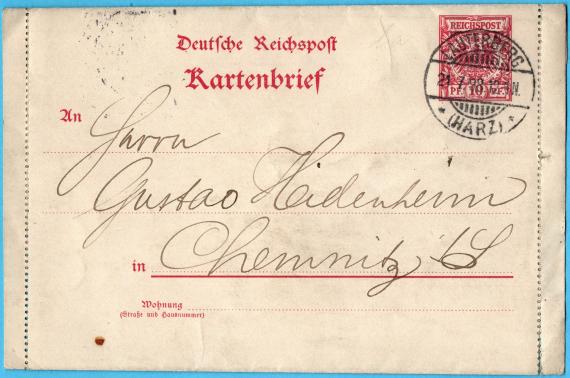 Deutsche Reichspost
Kartenbrief
REICHSPOST
PF. 10 PF.
LAUTERBERG
21.7.98.12-1N.
* (HARZ) *
An Herrn
Gustav Heidenheim
in Chemnitz i/S
Wohnung
(Straße und Hausnummer)